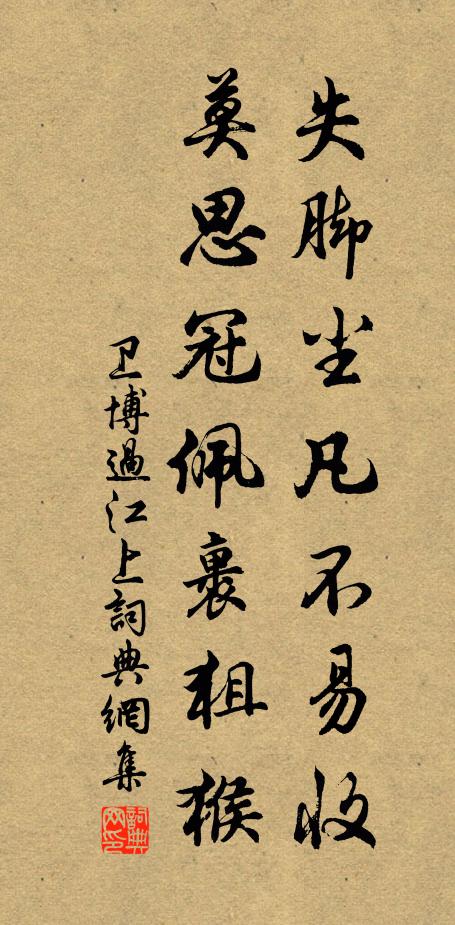 失脚尘凡不易收
莫思冠佩裹狙猴
卫博過江上詞典網集
詞典网印